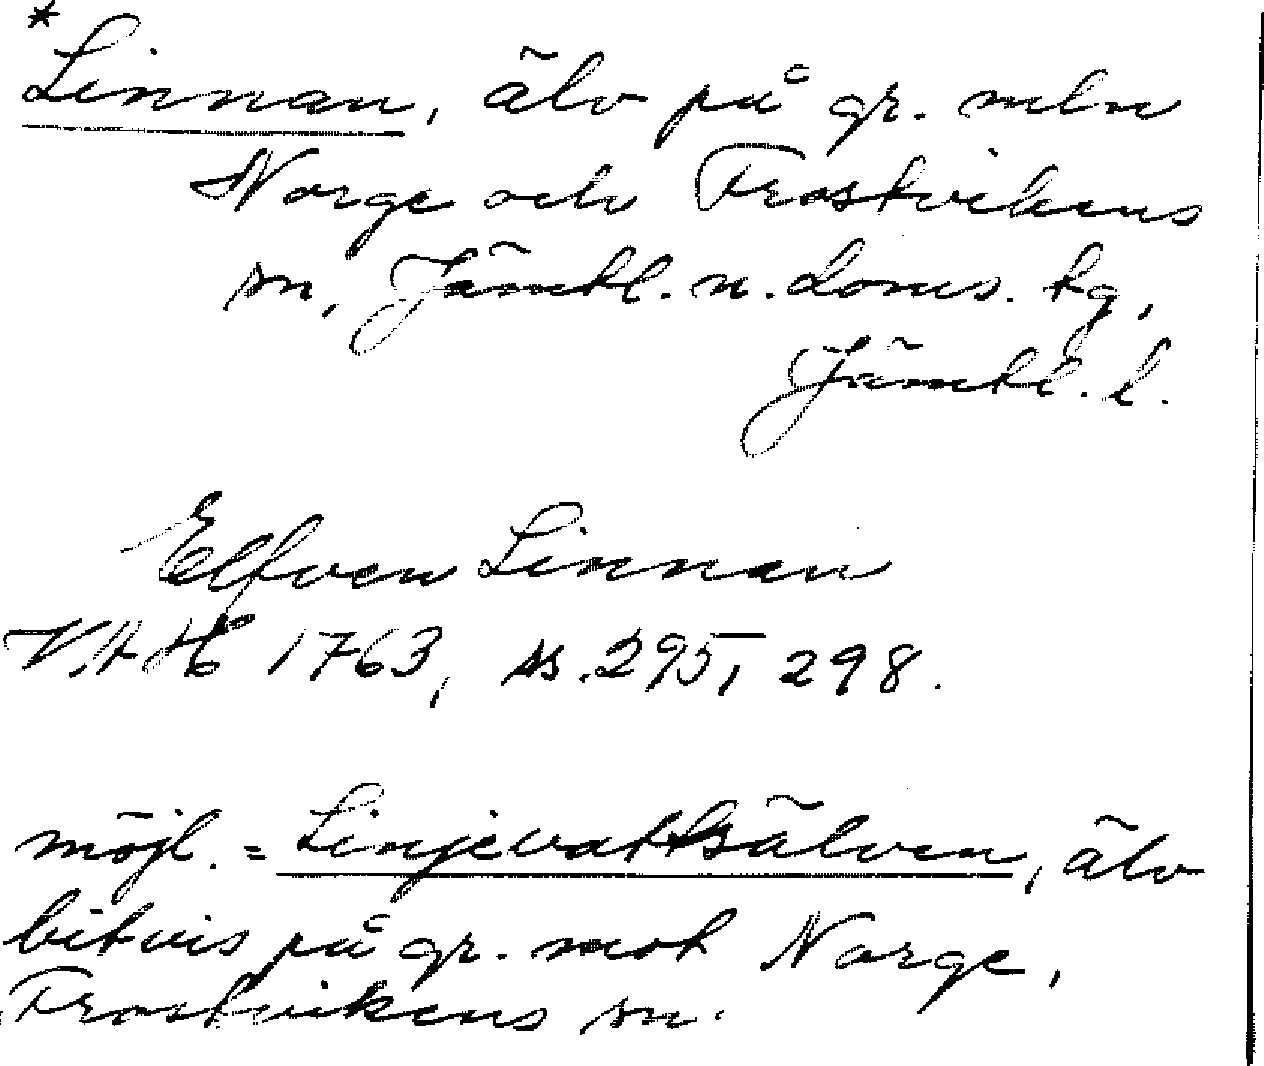 *
Linnan, älv på gr. mln
Norge och Frostvikens
sn, Jämtl. n. doms. tg,
Jämtl. l.
Elfven Linnan
VAH 1763, ss. 295, 298.
möjl. = Linjevattsälven, älv
bitvis på gr. mot Norge,
Frostvikens sn.